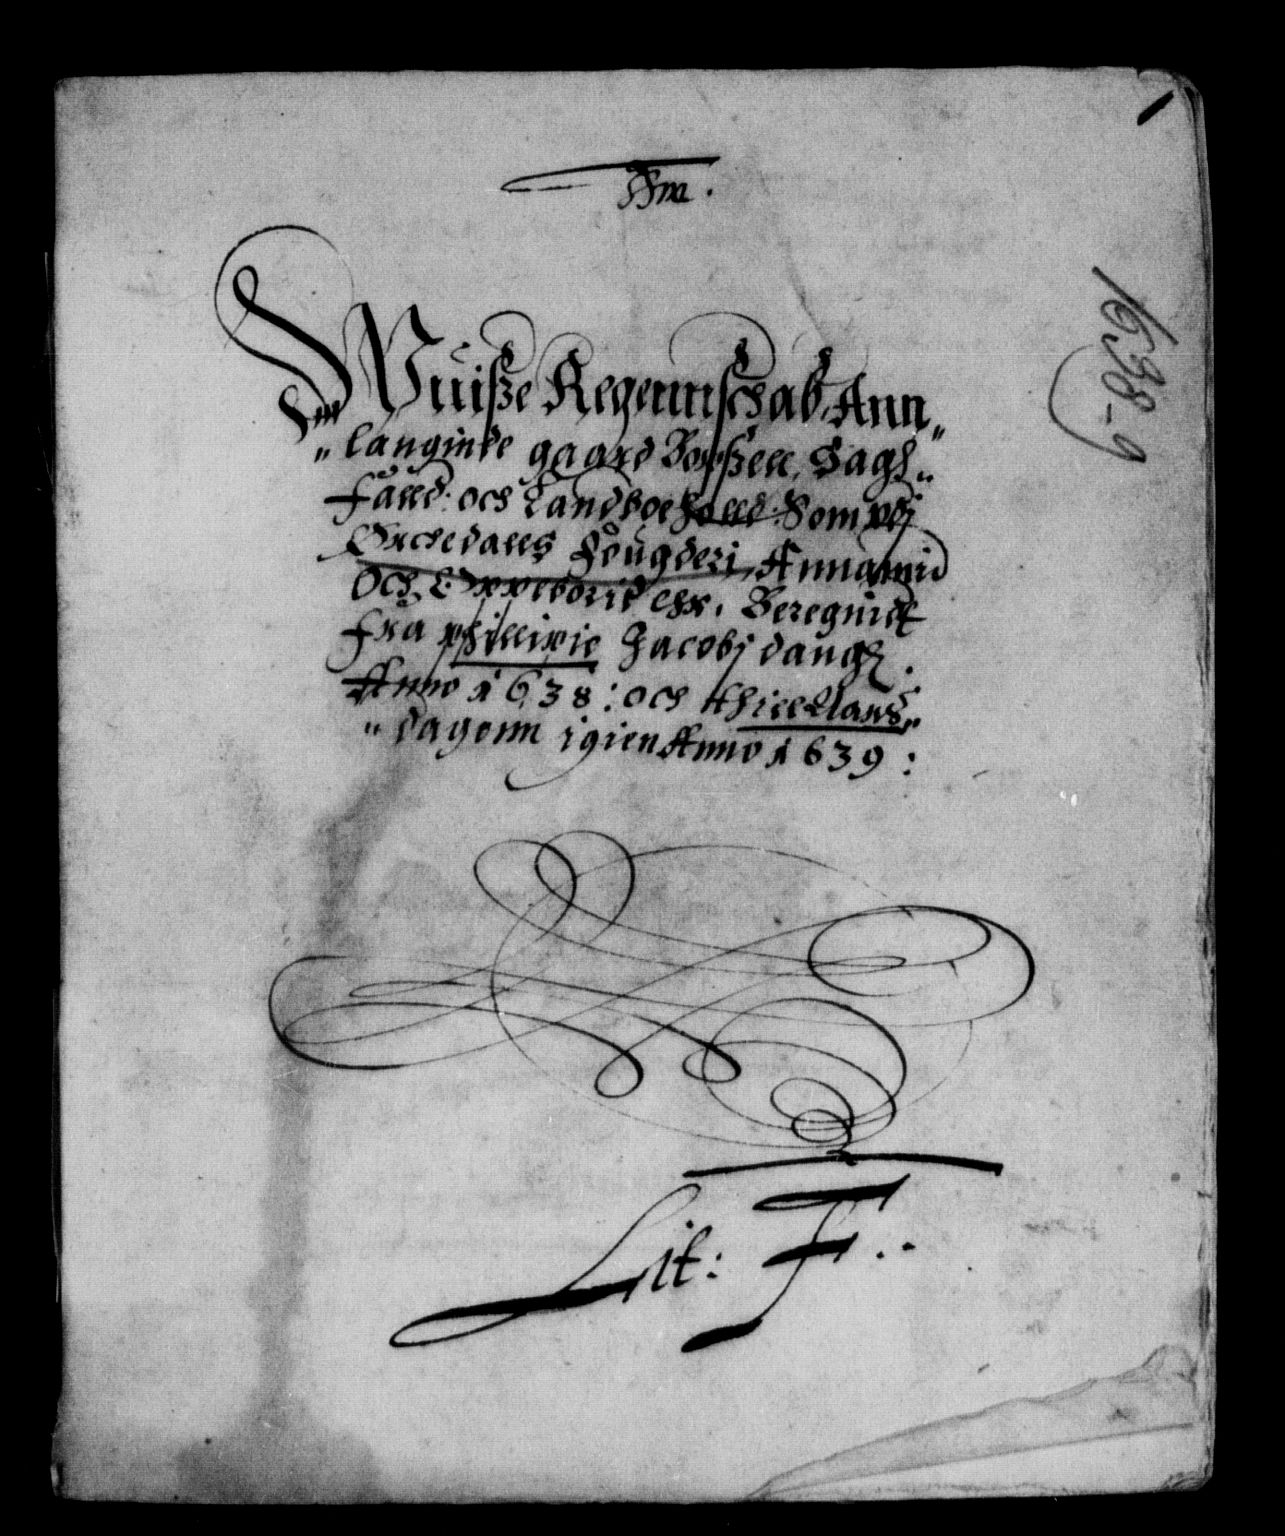 1
1638-9
Wuisze Regennschab, Ann„
„langinde gaard Bøxszell, Sagh„
Falld: och Landboeholld: Som wdj
Orchedalls Fougderi, Annamid
Och Oppeborit Er. Beregnidt
Fra phillipie Jacobj daugh.
Anno 1638: och thill Aars„
„dagenn igien Anno 1639:
Lit: F..